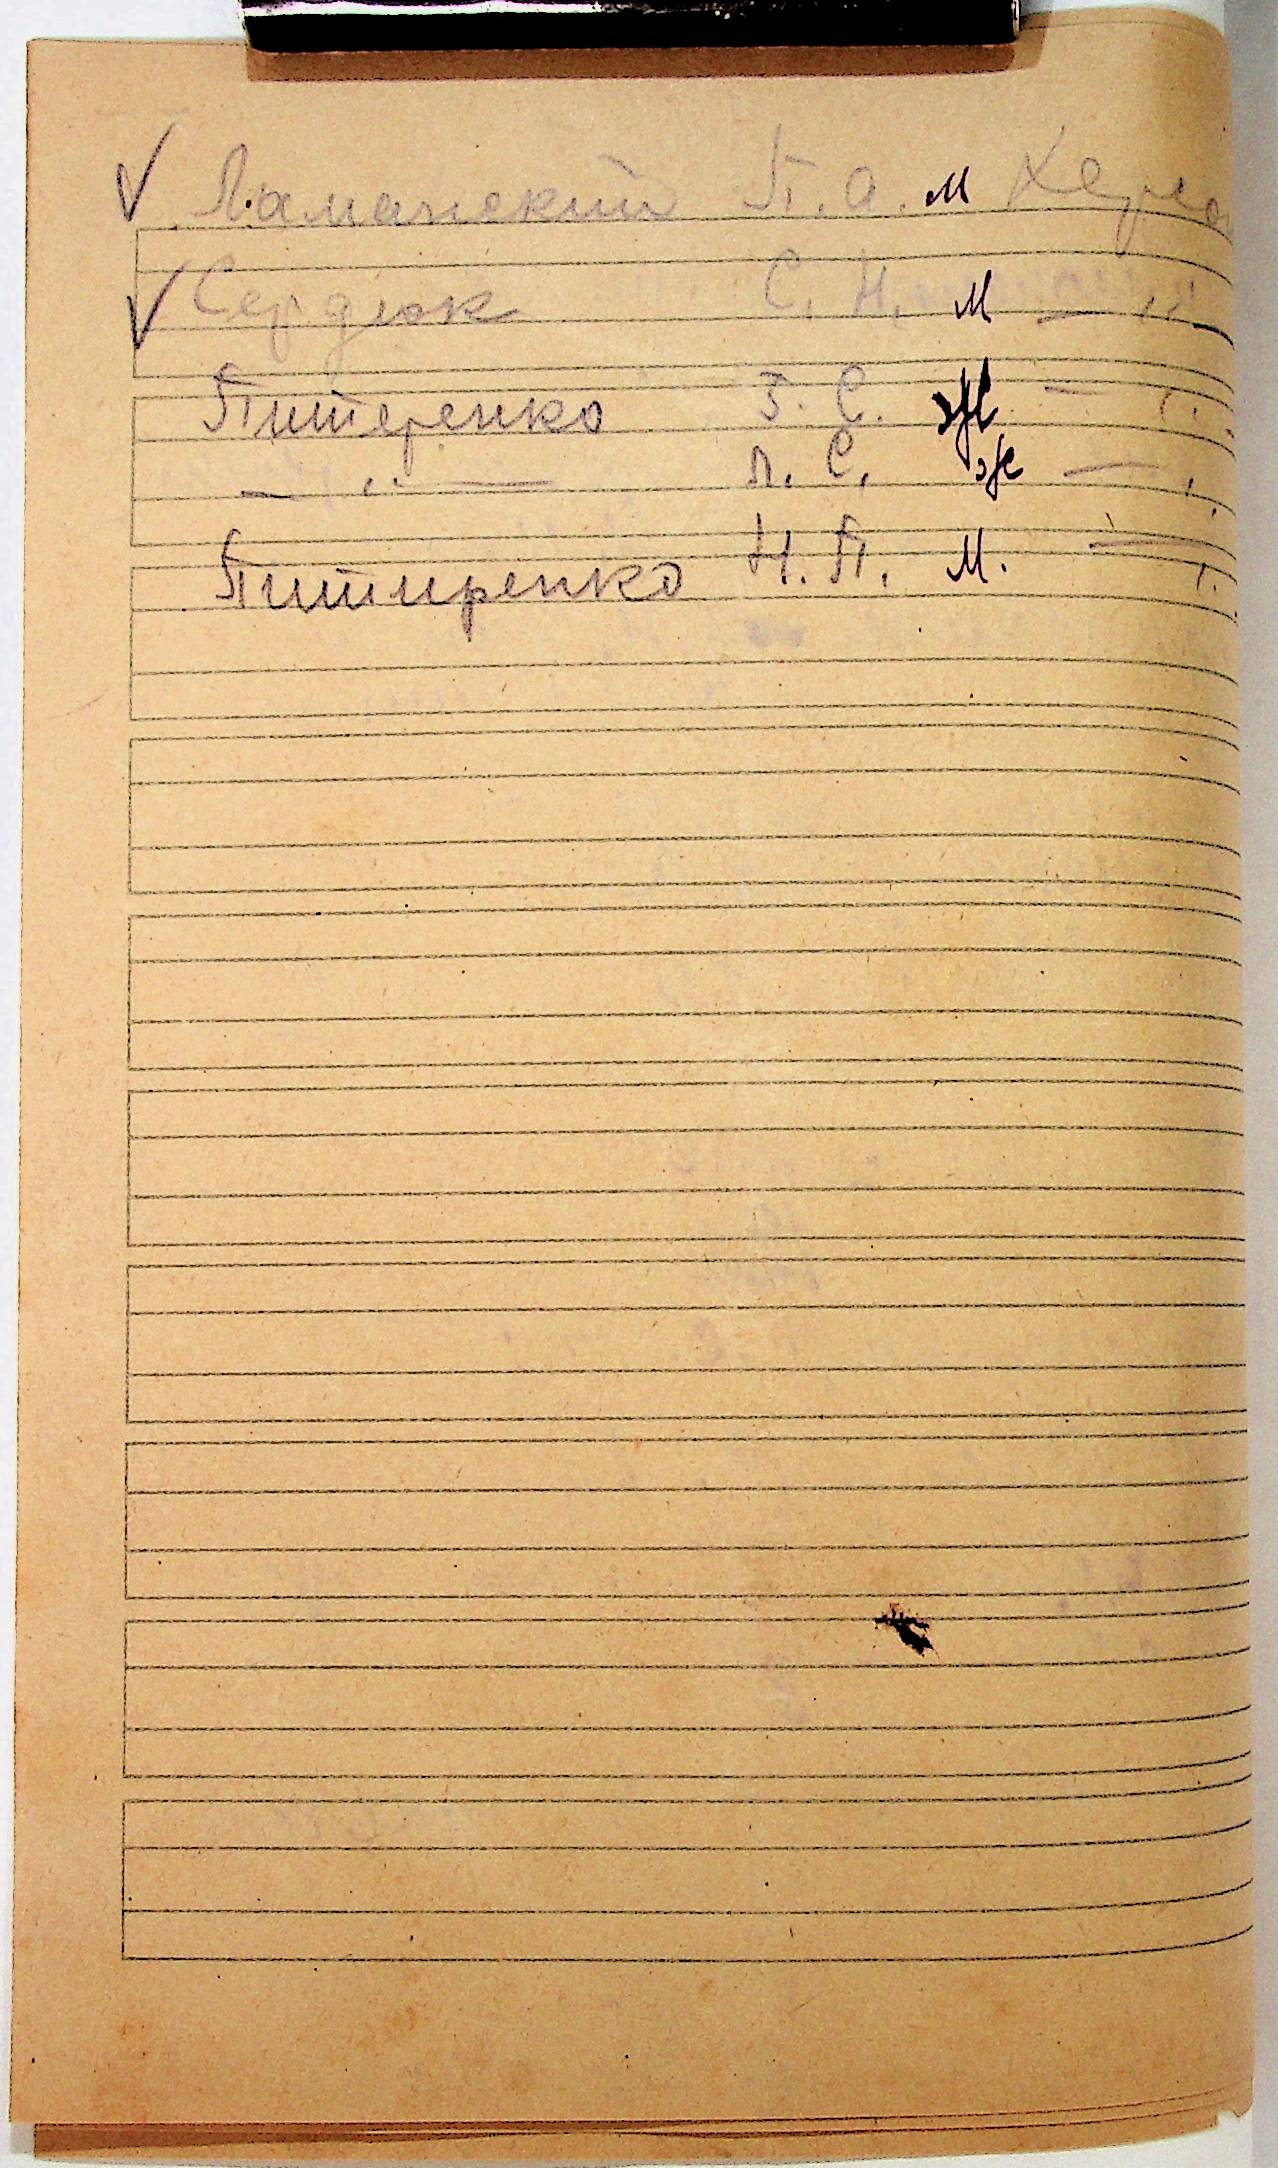 ✓ Ламанский П. А. м Херсо
✓ Сердюк С. Н. м — " —
Питеренко З. С. ж — "
— " — Л. С. ж — "
Питиренко Н. П. м. — "